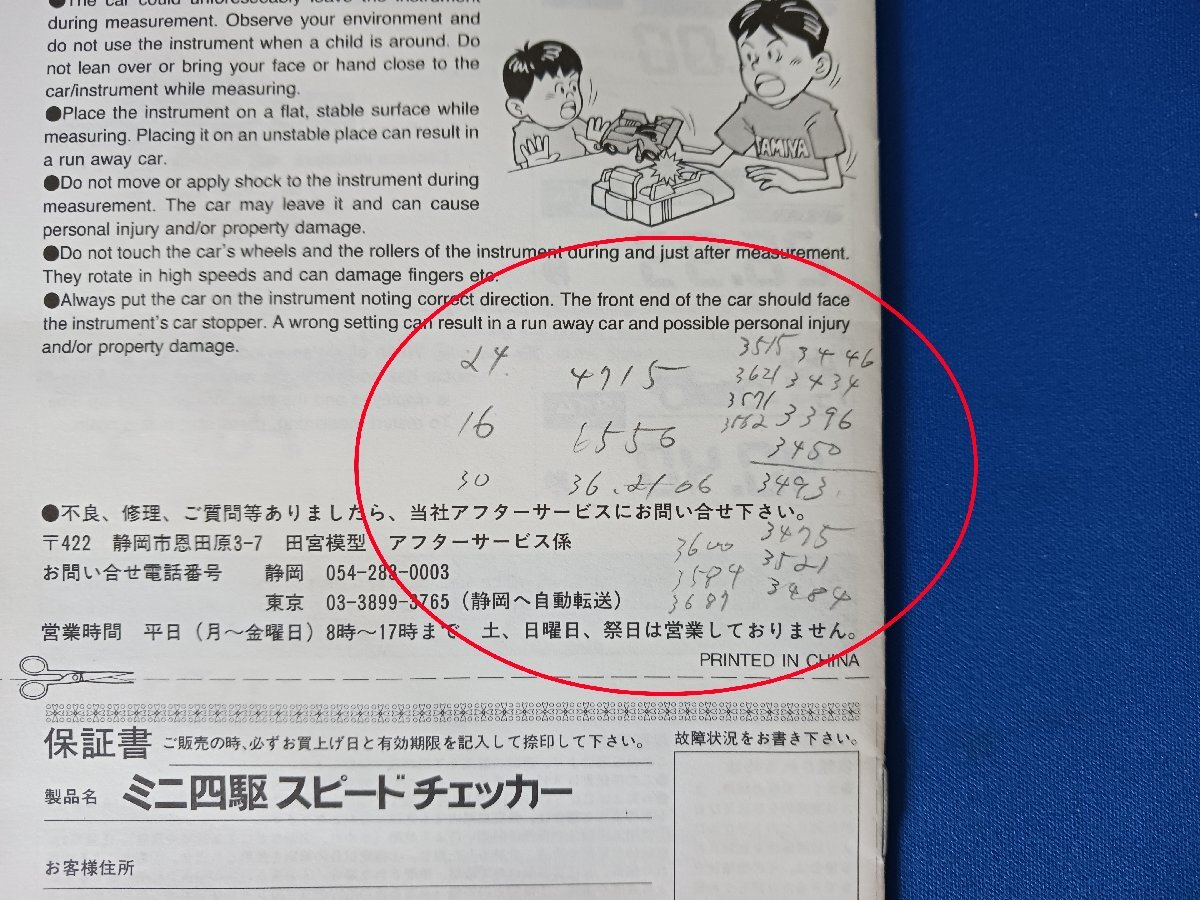 ●The car could unforeseeably leave the instrument
during measurement. Observe your environment and
do not use the instrument when a child is around. Do
not lean over or bring your face or hand close to the
car/instrument while measuring.
●Place the instrument on a flat, stable surface while
measuring. Placing it on an unstable place can result in
a run away car.
●Do not move or apply shock to the instrument during
measurement. The car may leave it and can cause
personal injury and/or property damage.
TAMIYA
●Do not touch the car's wheels and the rollers of the instrument during and just after measurement.
They rotate in high speeds and can damage fingers etc.
●Always put the car on the instrument noting correct direction. The front end of the car should face
the instrument's car stopper. A wrong setting can result in a run away car and possible personal injury
and/or property damage.
3515 3446
24. 4715 3621 3434
3571
16 6556 3562 3396
3450
30 36.2106 3493.
●不良、修理、ご質問等ありましたら、当社アフターサービスにお問い合せ下さい。
〒422 静岡市恩田原3-7 田宮模型 アフターサービス係
3600 3475
お問い合せ電話番号 静岡 054-283-0003
3584 3521
東京 03-3899-3765（静岡へ自動転送）
3687 3484
営業時間 平日（月〜金曜日）8時〜17時まで 土、日曜日、祭日は営業しておりません。
PRINTED IN CHINA
保証書 ご販売の時、必ずお買上げ日と有効期限を記入して捺印して下さい。
故障状況をお書き下さい。
製品名 ミニ四駆 スピードチェッカー
お客様住所